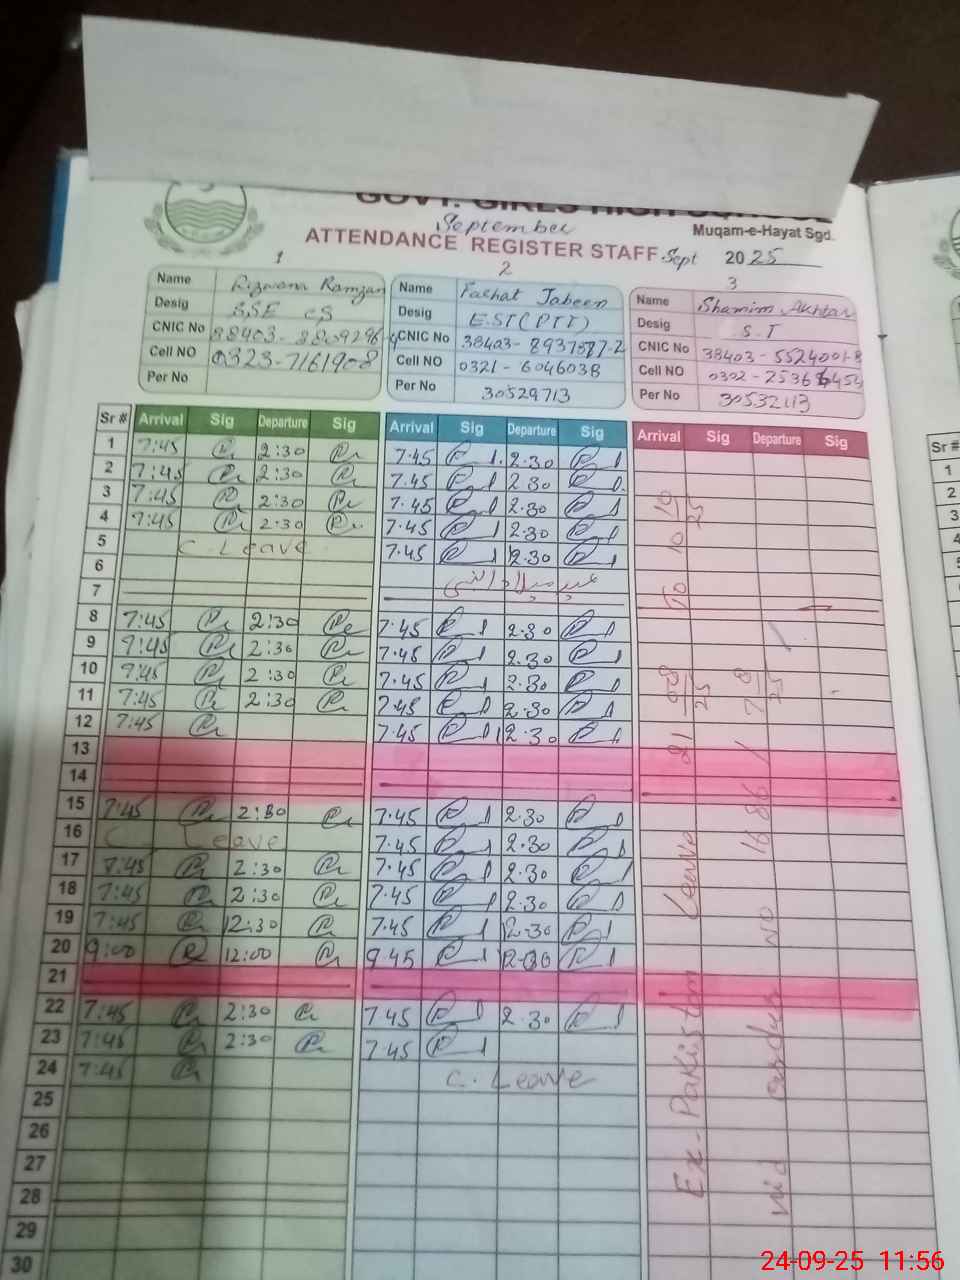 September
Muqam-e-Hayat Sgd.
ATTENDANCE REGISTER STAFF Sept 2025
1 2 3
Name Rizwana Ramzan
Desig SSE CS
CNIC No
Cell NO 0323-7161908
Per No
Name Farhat Jabeen
Desig EST(PTI)
CNIC No 38403-8937587-2
Cell NO 0321-6046038
Per No 30529713
Name Shamim Akhtar
Desig S.T
CNIC No 38403-5524001-8
Cell NO
Per No 30532113
Sr # Arrival Sig Departure Sig Arrival Sig Departure Sig Arrival Sig Departure Sig
1 7:45 2:30 7.45 2.30
2 7:45 2:30 7.45 2.30
3 7:45 2:30 7.45 2.30
4 7:45 2:30 7.45 2.30
5 C. Leave 7.45 2.30
6
7
8 7:45 2:30 7.45 2.30
9 7:45 2:30 7.45 2.30
10 7:45 2:30 7.45 2.30
11 7:45 2:30 7.45 2.30
12 7:45 7.45 2.30
13
14
15 7:45 2:30 7.45 2.30
16 C. Leave 7.45 2.30
17 7:45 2:30 7.45 2.30
18 7:45 2:30 7.45 2.30
19 7:45 12:30 7.45 12.30
20 9:00 12:00 9.45
21
22 7:45 2:30 7.45 2.30
23 7:45 2:30 7.45
24 7:45 C. Leave
25
26
27
28
29
30
Ex-Pakistan Leave 21 08/25 To 10 10/25
vid order No 1686/ 7 8/25
Sr #
1
2
3
4
24-09-25 11:56